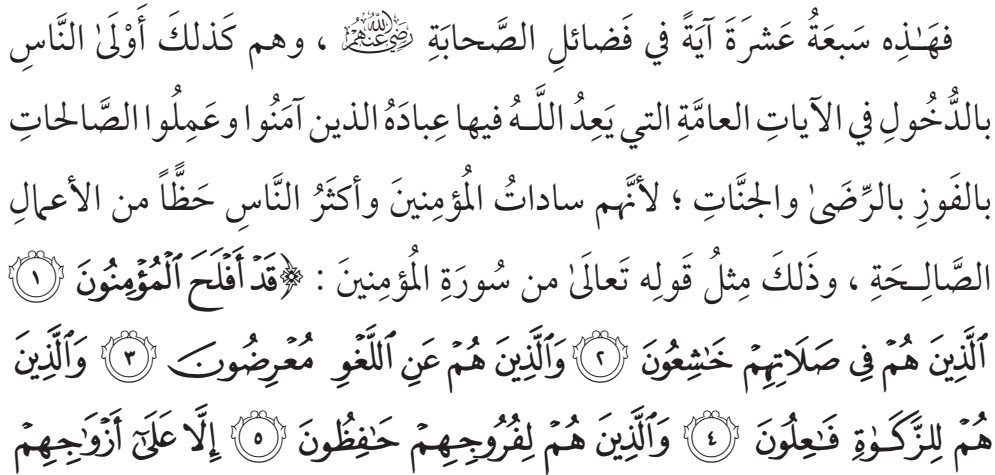 فهَـٰذِه سَبعَةُ عَشرَةَ آيَةً في فَضائلِ الصَّحابَةِ رَضِيَ اللهُ عَنْهُمْ ، وهم كَذلكَ أَوْلَىٰ النَّاسِ
بالدُّخُولِ في الآياتِ العامَّةِ التي يَعِدُ اللَّـهُ فيها عِبادَهُ الذين آمَنُوا وعَمِلُوا الصَّالحاتِ
بالفَوزِ بالرِّضَىٰ والجنَّاتِ ؛ لأنَّهم ساداتُ المُؤمِنينَ وأكثَرُ النَّاسِ حَظًّاً من الأعمالِ
الصَّالِـحَةِ ، وذَلكَ مِثلُ قَولِه تَعالَىٰ من سُورَةِ المُؤمِنينَ : ﴿قَدۡ أَفۡلَحَ ٱلۡمُؤۡمِنُونَ ١
ٱلَّذِينَ هُمۡ فِي صَلَاتِهِمۡ خَٰشِعُونَ ٢ وَٱلَّذِينَ هُمۡ عَنِ ٱللَّغۡوِ مُعۡرِضُونَ ٣ وَٱلَّذِينَ
هُمۡ لِلزَّكَوٰةِ فَٰعِلُونَ ٤ وَٱلَّذِينَ هُمۡ لِفُرُوجِهِمۡ حَٰفِظُونَ ٥ إِلَّا عَلَىٰٓ أَزۡوَٰجِهِمۡ